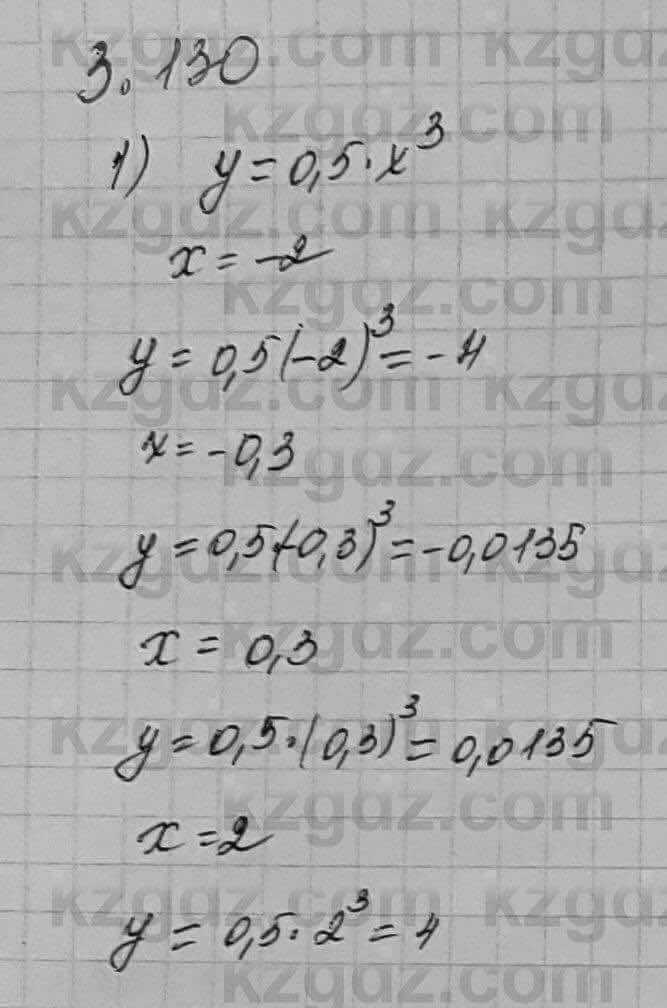 3.130
1) y = 0,5 · x³
x = -2
y = 0,5(-2)³ = -4
x = -0,3
y = 0,5(-0,3)³ = -0,0135
x = 0,3
y = 0,5 · (0,3)³ = 0,0135
x = 2
y = 0,5 · 2³ = 4
kzgdz.com